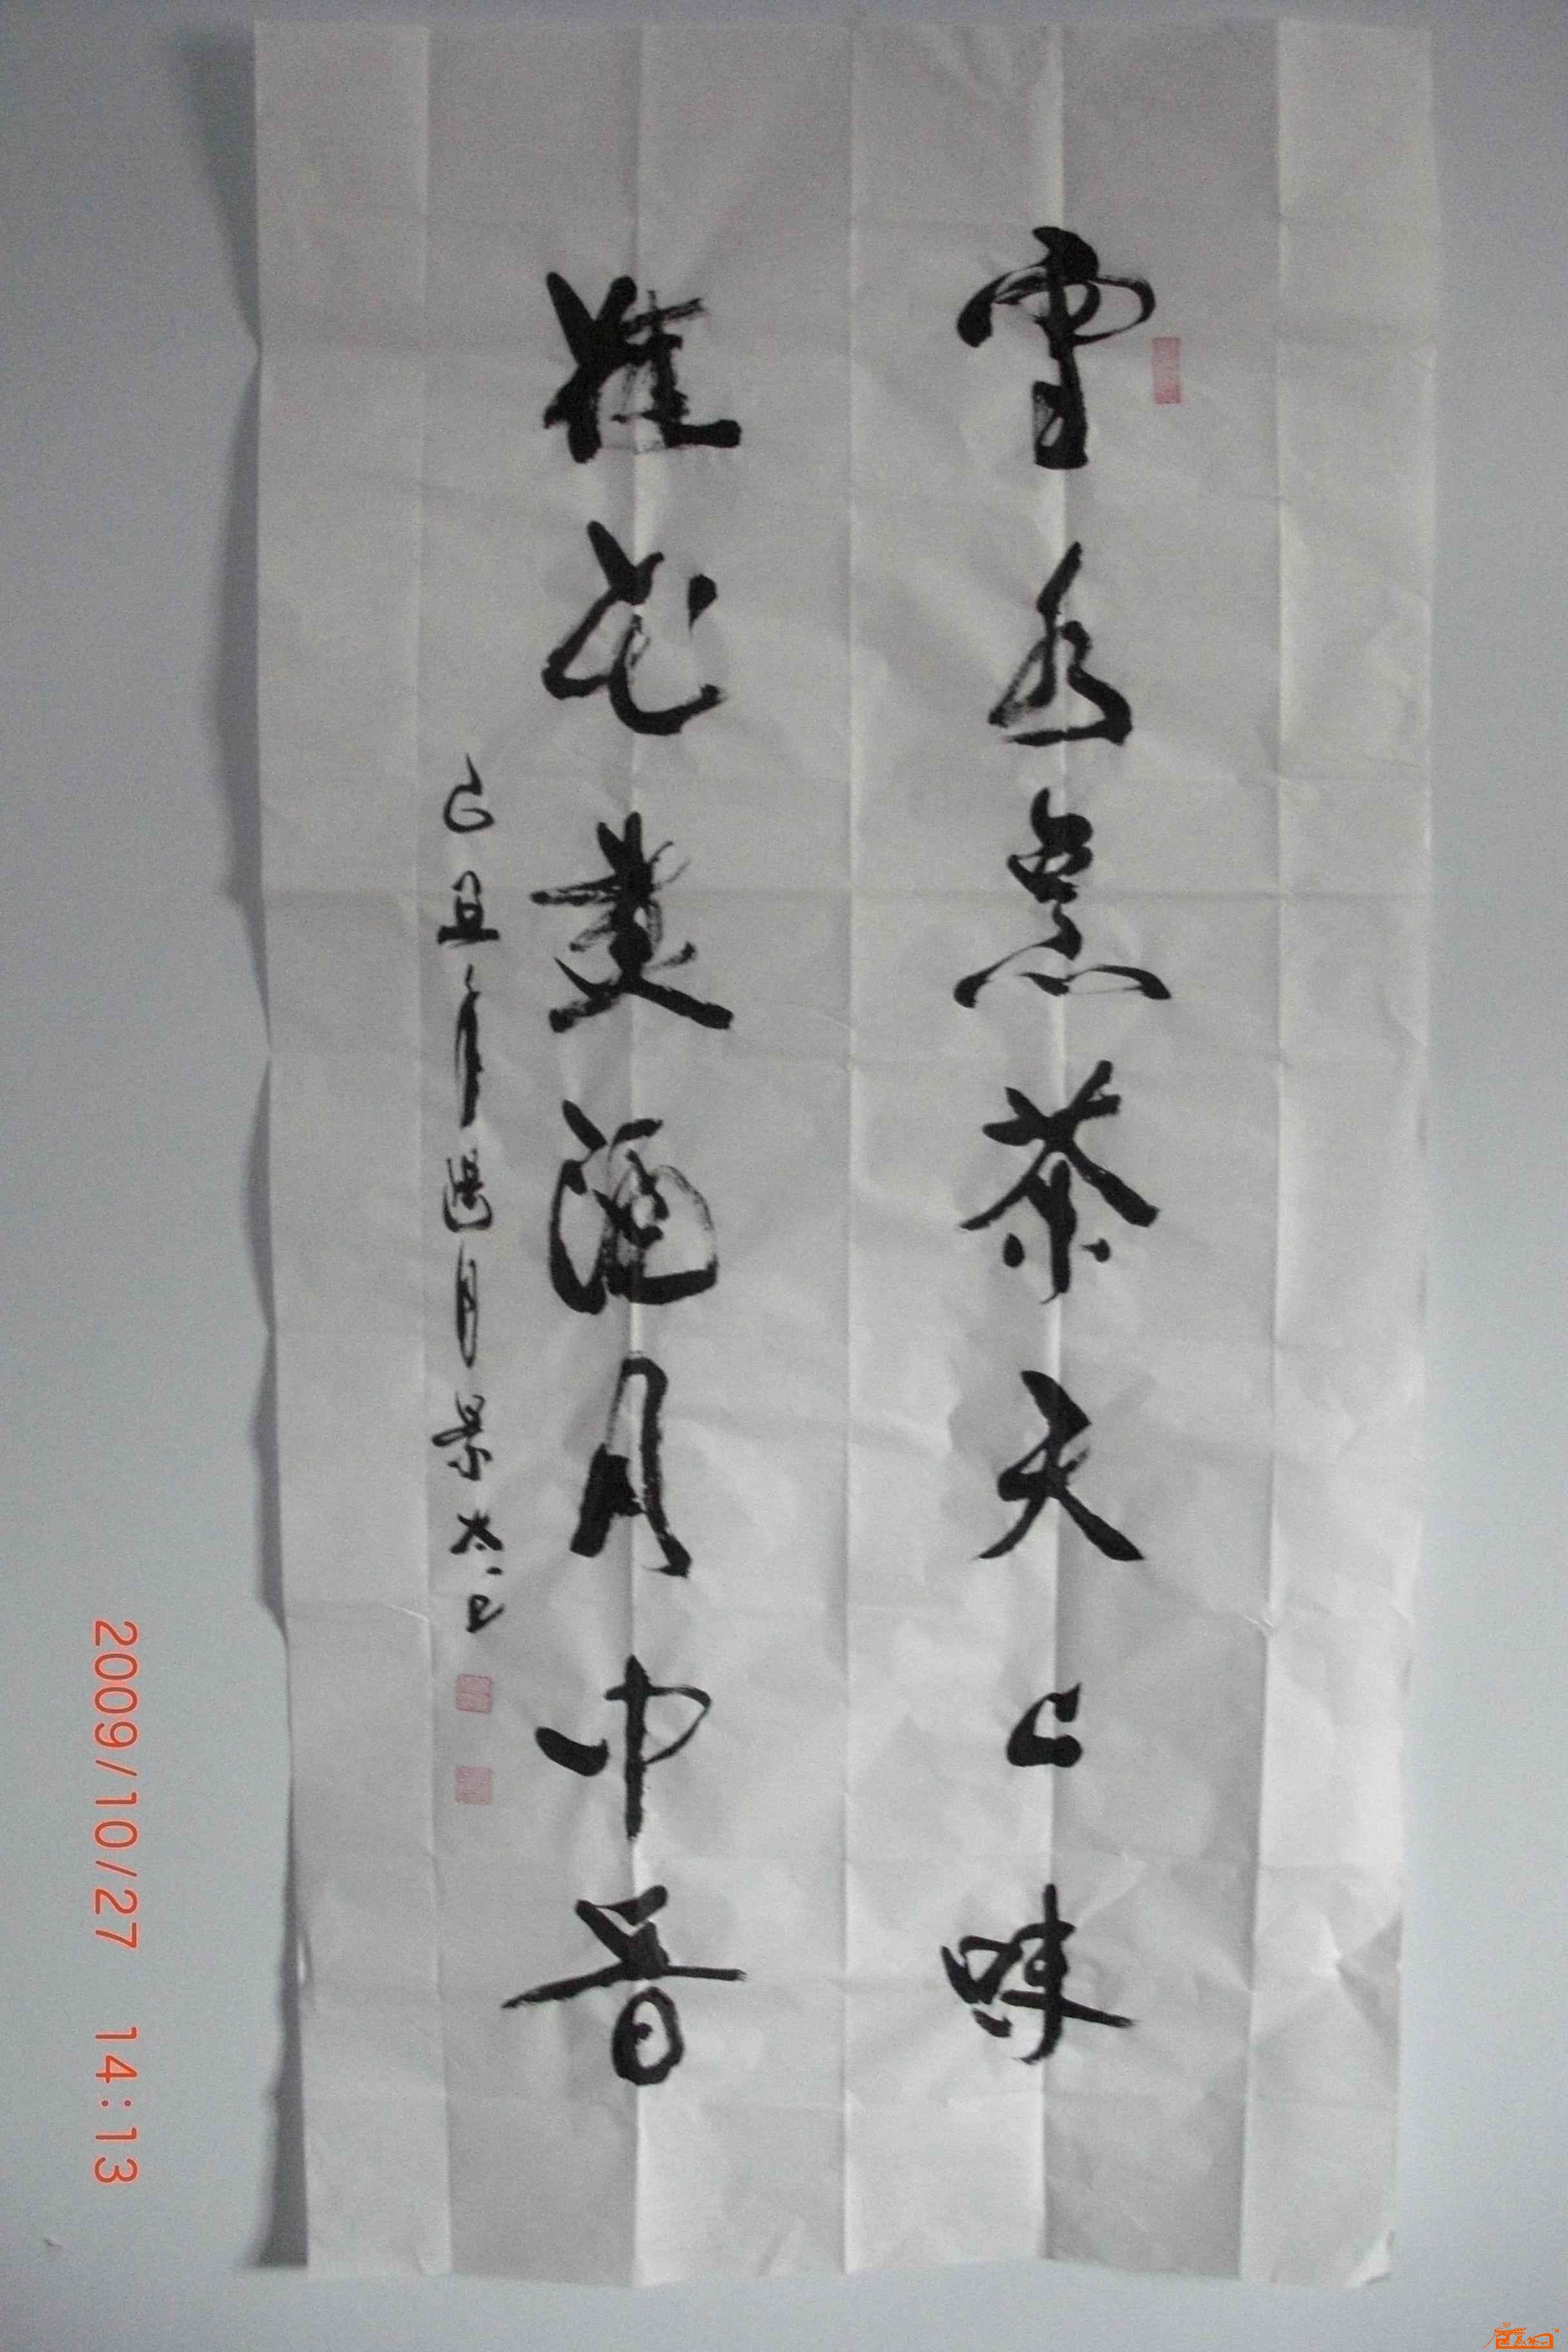 雪水烹茶天上味
桂花美酒月中香
己丑年 月景
2009/10/27 14:13